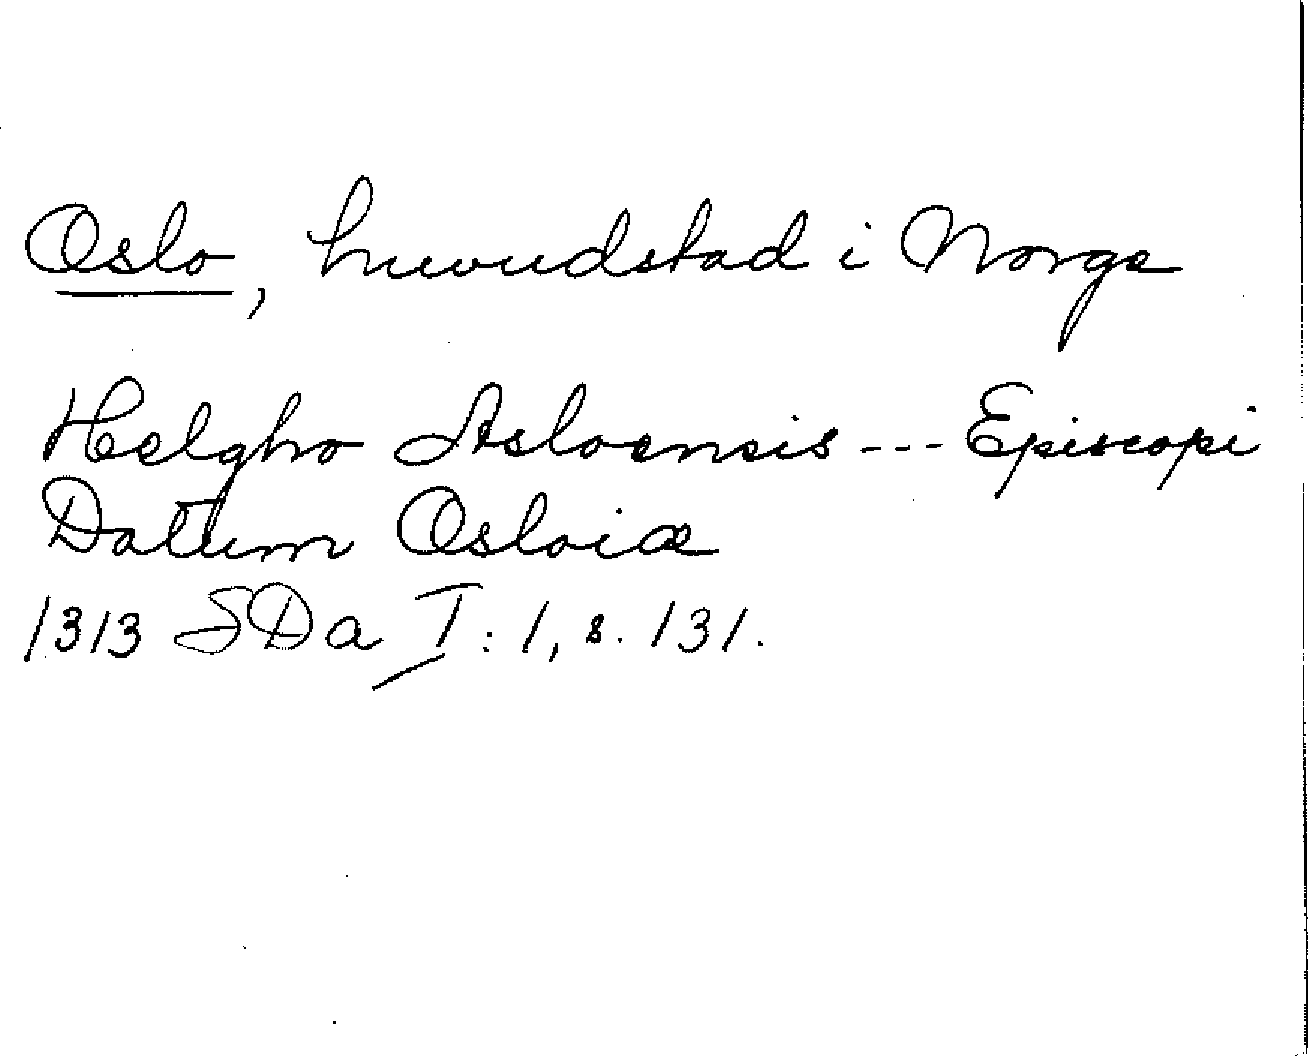 Oslo, huvudstad i Norge
Helgho Asloensis --- Episcopi
Datum Osloiæ
1313 SDa I: 1, s. 131.